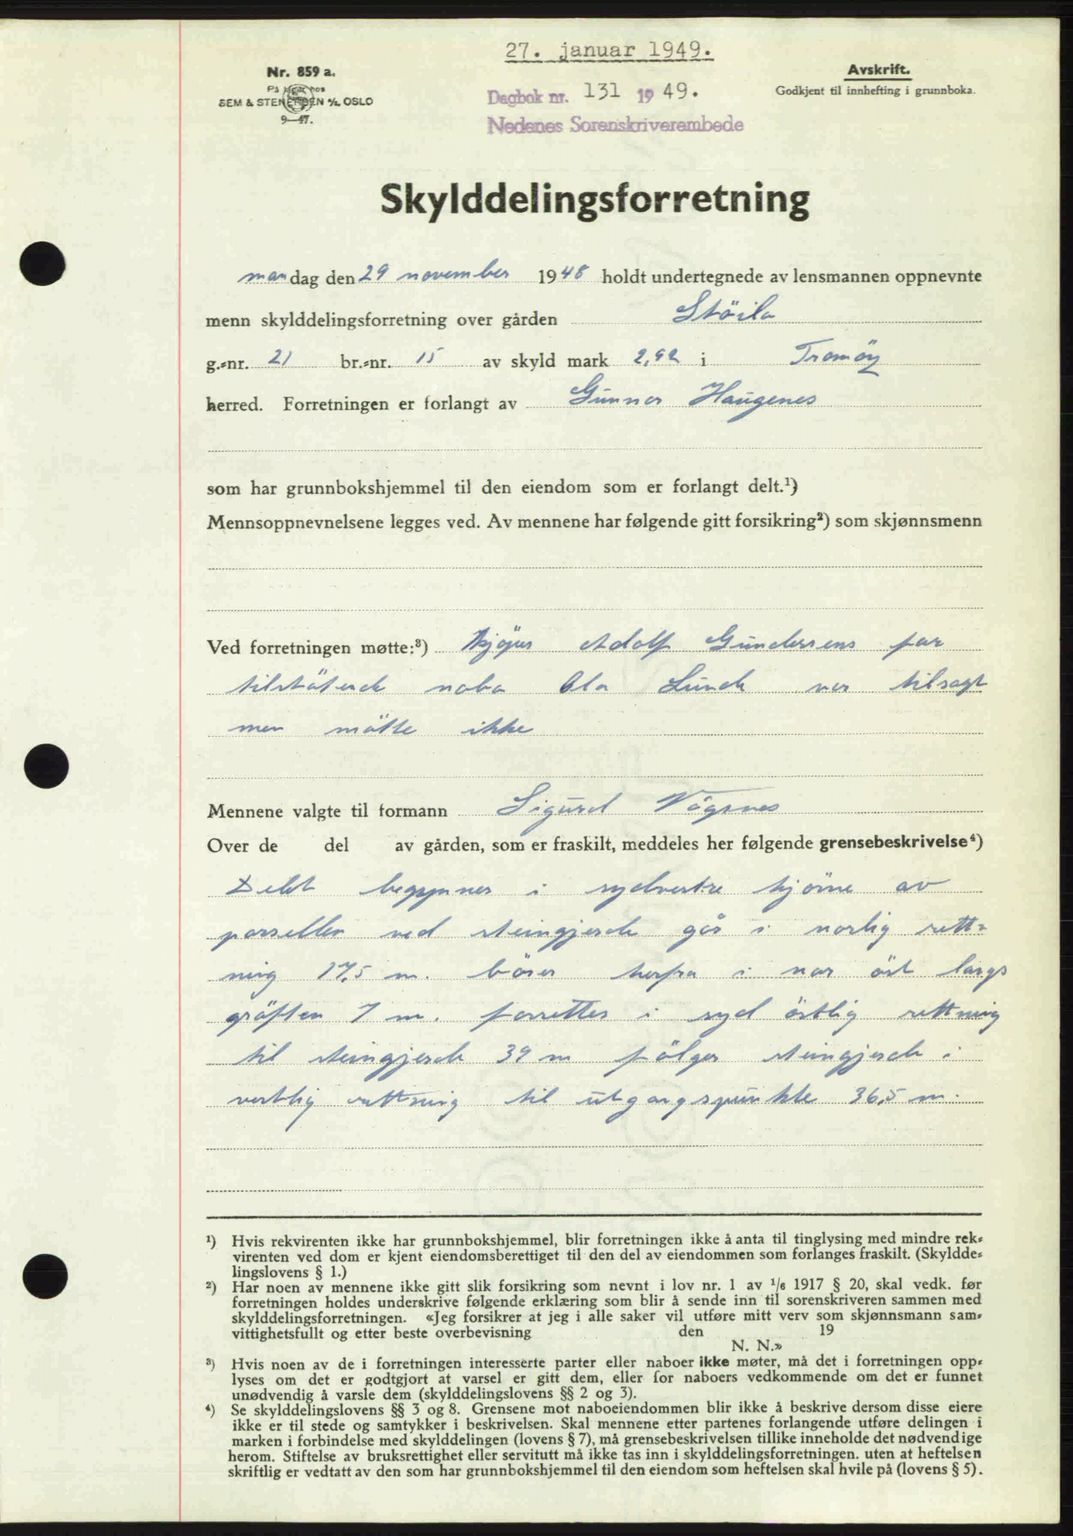 27. januar 1949.
Nr. 859 a.
På lager hos
SEM & STENERSEN A/S, OSLO
9—47.
Avskrift.
Godkjent til innhefting i grunnboka.
Dagbok nr. 131 1949.
Nedenes Sorenskriverembede
Skylddelingsforretning
mandag den 29 november 1948 holdt undertegnede av lensmannen oppnevnte
menn skylddelingsforretning over gården Stöila
g.-nr. 21 br.-nr. 15 av skyld mark 2,92 i Tromöy
herred. Forretningen er forlangt av Gunnar Haugenes
som har grunnbokshjemmel til den eiendom som er forlangt delt.¹)
Mennsoppnevnelsene legges ved. Av mennene har følgende gitt forsikring²) som skjønnsmenn
Ved forretningen møtte:³) Kjöper Adolf Gundersens far
tilstötende nabo Ola Lunde var tilsagt
men mötte ikke
Mennene valgte til formann Sigurd Vågsnes
Over de del av gården, som er fraskilt, meddeles her følgende grensebeskrivelse⁴)
Delet begynner i sydvestre hjörne av
parsellen ved steingjerde går i norlig rett-
ning 17,5 m. böier herfra i nor öst langs
gröften 7 m. forsettes i syd östlig rettning
til steingjerde 39 m fölger steingjerde i
vestlig rettning til utgangspunkte 36,5 m.
¹) Hvis rekvirenten ikke har grunnbokshjemmel, blir forretningen ikke å anta til tinglysing med mindre rek-
virenten ved dom er kjent eiendomsberettiget til den del av eiendommen som forlanges fraskilt. (Skyldde-
lingslovens § 1.)
²) Har noen av mennene ikke gitt slik forsikring som nevnt i lov nr. 1 av ¹/₆ 1917 § 20, skal vedk. før
forretningen holdes underskrive følgende erklæring som blir å sende inn til sorenskriveren sammen med
skylddelingsforretningen. «Jeg forsikrer at jeg i alle saker vil utføre mitt verv som skjønnsmann sam-
vittighetsfullt og etter beste overbevisning den 19
N. N.»
³) Hvis noen av de i forretningen interesserte parter eller naboer ikke møter, må det i forretningen opp-
lyses om det er godtgjort at varsel er gitt dem, eller for naboers vedkommende om det er funnet
unødvendig å varsle dem (skylddelingslovens §§ 2 og 3).
⁴) Se skylddelingslovens §§ 3 og 8. Grensene mot naboeiendommen blir ikke å beskrive dersom disse eiere
ikke er til stede og samtykker i beskrivelsen. Skal mennene etter partenes forlangende utføre delingen i
marken i forbindelse med skylddelingen (lovens § 7), må grensebeskrivelsen tillike inneholde det nødvendige
herom. Stiftelse av bruksrettighet eller servitutt må ikke tas inn i skylddelingsforretningen, uten at heftelsen
skriftlig er vedtatt av den som har grunnbokshjemmel til den eiendom som heftelsen skal hvile på (lovens § 5).